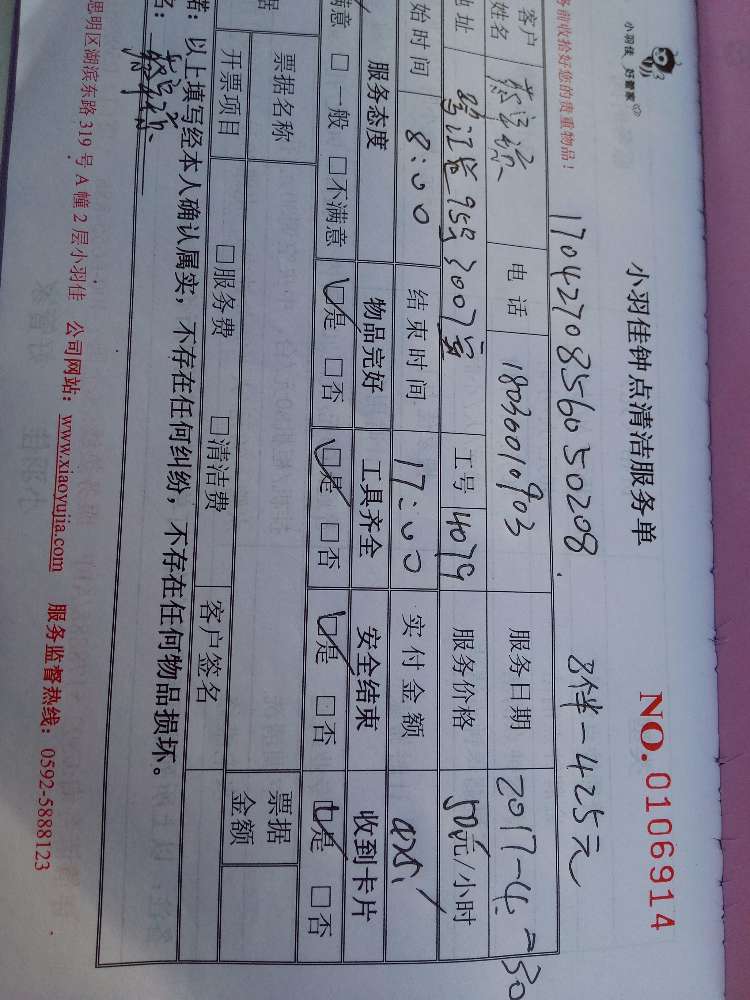 小羽佳 好管家
小羽佳钟点清洁服务单
NO.0106914
务前收拾好您的贵重物品！
1704270856050208. 8件-425元
客户姓名 电话 18030010903 服务日期 2017-4-30
地址 955号3007室 工号 4079 服务价格 50元/小时
始时间 8:00 结束时间 17:00 实付金额 425
服务态度 物品完好 工具齐全 安全结束 收到卡片
满意 □一般 □不满意 □是 □否 □是 □否 □是 □否 □是 □否
据 票据名称 票据金额
开票项目 □服务费 □清洁费 客户签名
诺：以上填写经本人确认属实，不存在任何纠纷，不存在任何物品损坏。
名：
思明区湖滨东路 319 号 A 幢 2 层小羽佳 公司网站：www.xiaoyujia.com 服务监督热线：0592-5888123